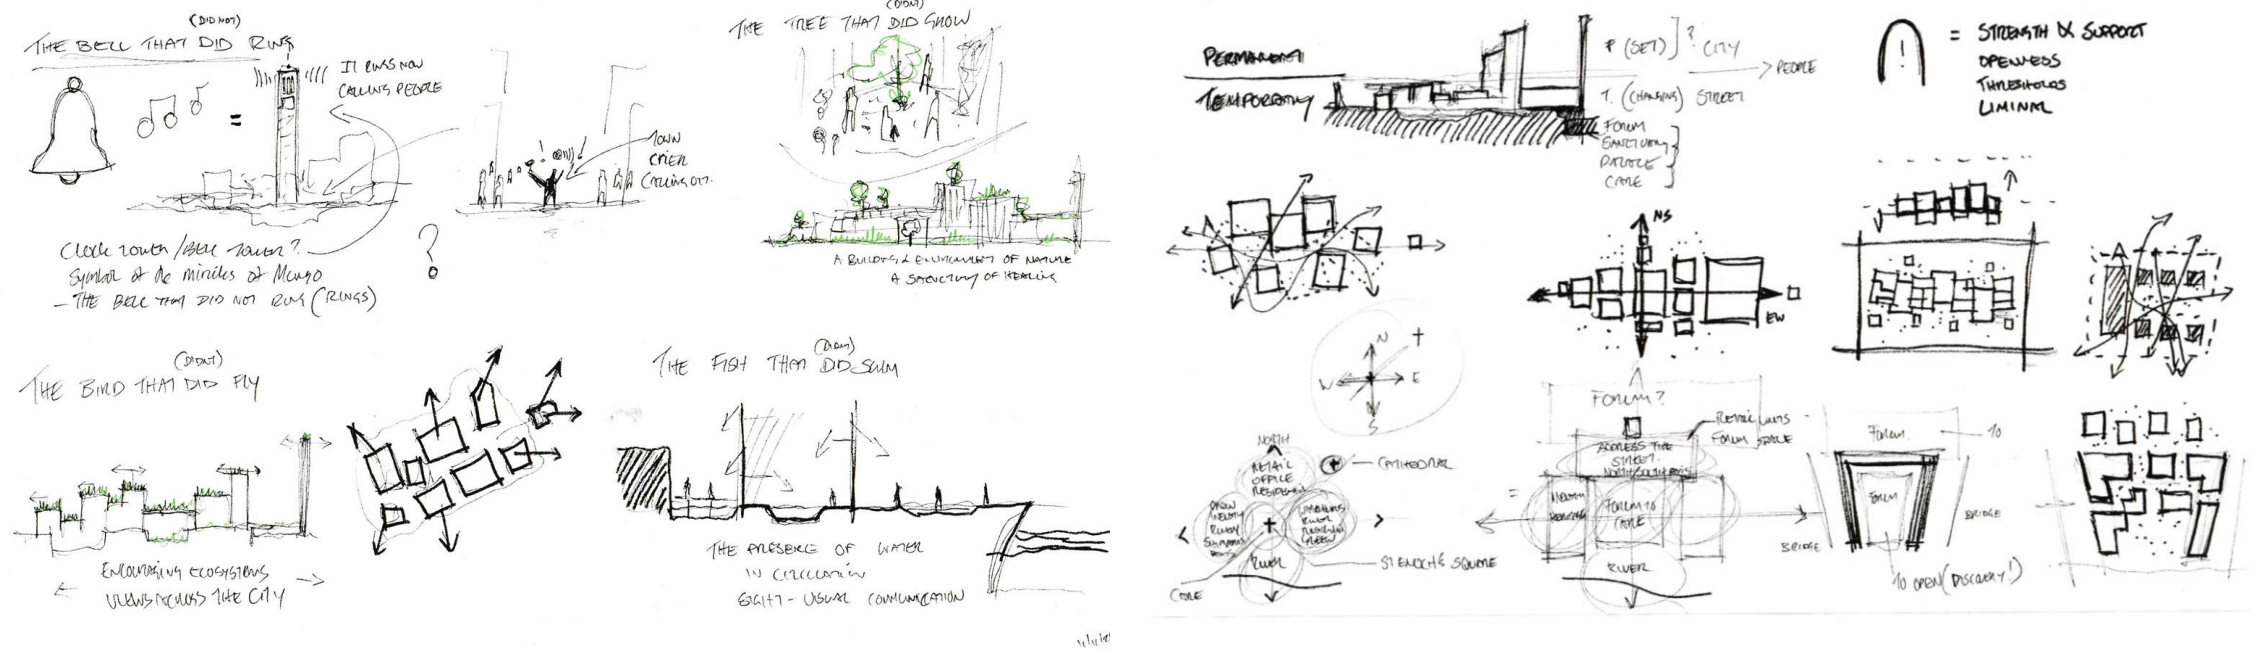 (DID NOT)
THE BELL THAT DID RING
IT RINGS NOW
CALLING PEOPLE
=
TOWN
CRIER
CALLING OUT.
CLOCK TOWER/BELL TOWER?
SYMBOL OF THE MIRACLES OF MUNGO
- THE BELL THAT DID NOT RING (RINGS)
?
(DIDNT)
THE TREE THAT DID GROW
A BUILDING & ENVIRONMENT OF NATURE
A SANCTUARY OF HEALING
(DIDNT)
THE BIRD THAT DID FLY
ENCOURAGING ECOSYSTEMS
VIEWS ACROSS THE CITY
(DIDNT)
THE FISH THAT DID SWIM
THE PRESENCE OF WATER
IN CIRCULATION
SIGHT - VISUAL COMMUNICATION
PERMANENT
TEMPORARY
P (SET) ] ? CITY
PEOPLE
T. (CHANGING) STREET
FORUM
SANCTUARY
CARE
! = STRENGTH & SUPPORT
OPENNESS
THRESHOLDS
LIMINAL
NS
EW
N
W E
S
NORTH
RETAIL
OFFICE
RESIDENTIAL
CATHEDRAL
RIVER
GREEN
RIVER
ST ENOCHS SQUARE
CARE
FORUM?
RETAIL UNITS
FORUM SPACE
ADDRESS THE
STREET.
NORTH SOUTH AXIS
=
FORUM TO
CARE
RIVER
BRIDGE
FORUM
TO
FORUM
BRIDGE
TO OPEN (DISCOVERY!)